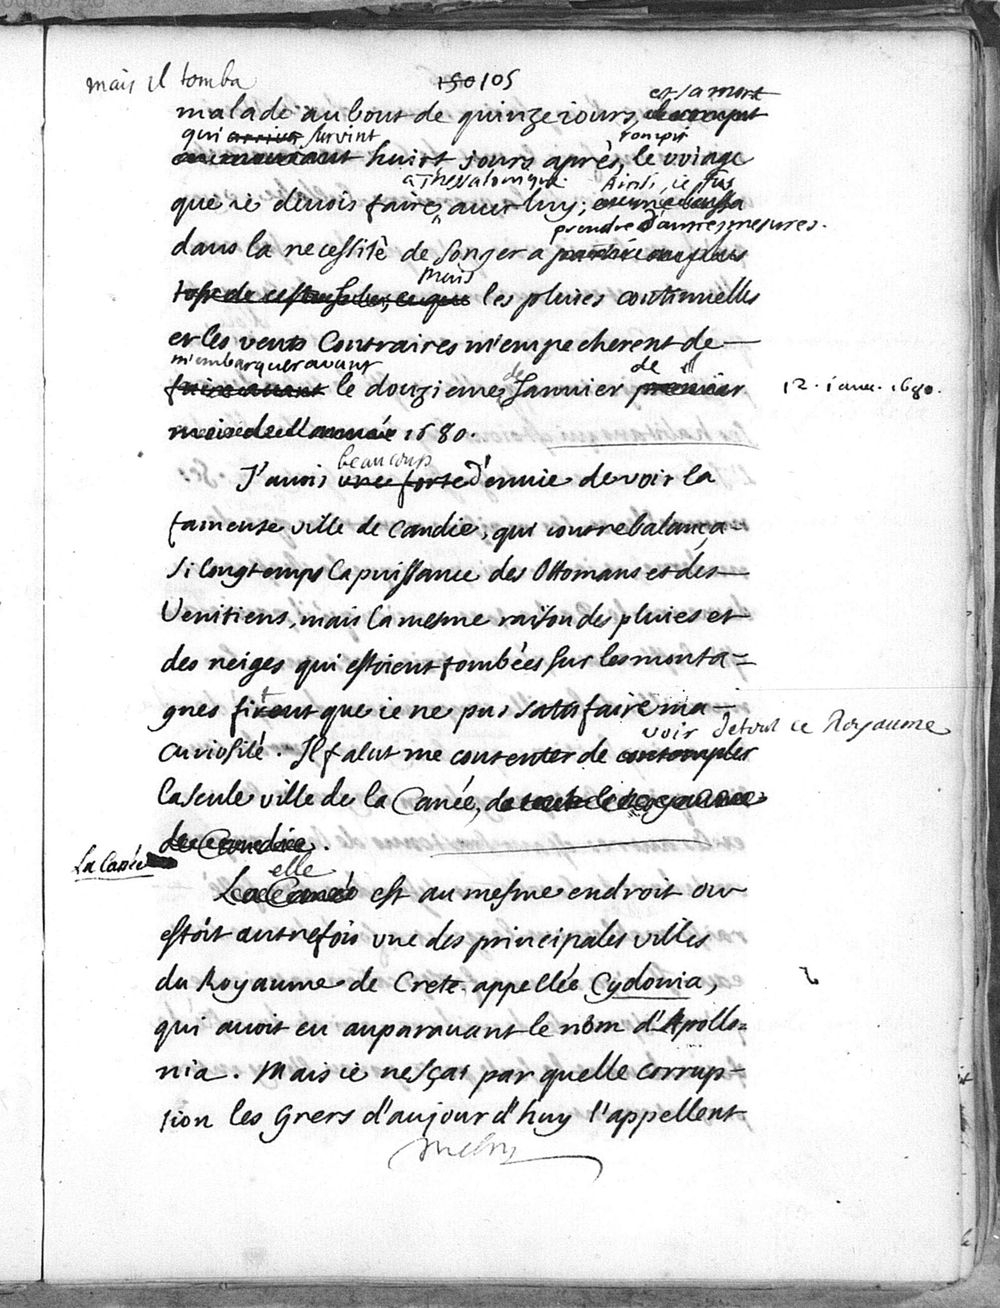 mais il tomba
150 105
et sa mort
malade au bout de quinze iours,
qui arriva survint rompit
en mourant huict iours aprés, le voiage
a Thessalonique. Ainsi, ie fus
que ie devois faire, avec luy;
prendre d'autres mesures.
dans la necessité de songer a
mais
les pluies continuelles
et les vents Contraires m'empecherent de
m'embarquer avant
faire avant le douzieme de Janvier de premier 12. ianv. 1680.
mois de l'année 1680.
beaucoup
J'avois une forte d'envie de voir la
fameuse ville de Candie, qui contrebalança
si longtemps la puissance des Ottomans et des
Venitiens, mais la mesme raison des pluies et
des neiges qui estoient tombées sur les monta=
gnes firent que ie ne pus satisfaire ma
voir de tout ce Royaume
curiosité. Il falut me contenter de contempler
la seule ville de la Canée, de tout le Royaume
de Candie.
La Canée
elle
La Canée est au mesme endroit ou
estoit autrefois une des principales villes
du Royaume de Crete appellée Cydonia,
qui avoit eu auparavant le nom d'Apollo=
nia. Mais ie ne sçai par quelle corrup-
tion les Grecs d'aujourd'huy l'appellent